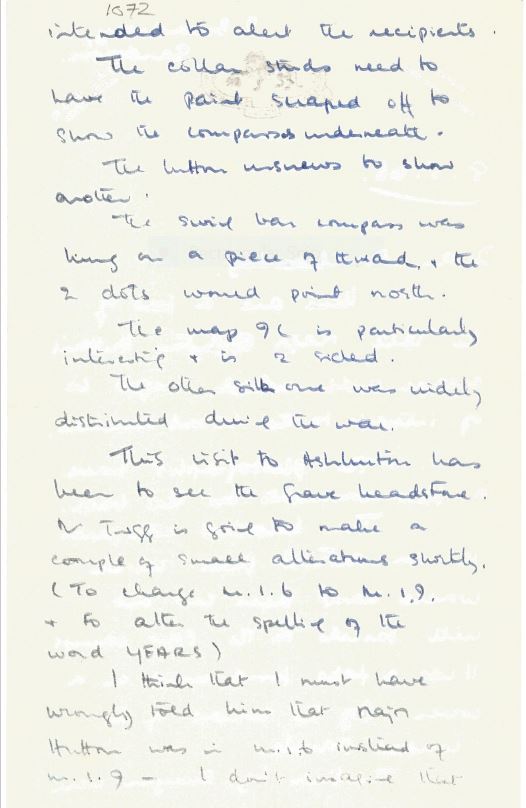 1072
intended to alert the recipients.
The collar studs need to
have the paint scraped off to
show the compasses underneath.
The button unscrews to show
another.
The swing bar compass was
hung on a piece of thread, + the
2 dots would point north.
The map 9C is particularly
interesting + is 2 sided.
The other silk one was widely
distributed during the war.
This visit to Ashburton has
been to see the grave headstone.
Mr Tugg is going to make a
couple of small alterations shortly.
(To change M.I.6 to M.I.9.
+ to alter the spelling of the
word YEARS)
I think that I must have
wrongly told him that Major
Hutton was in M.I.6 instead of
M.I.9 – I don't imagine that